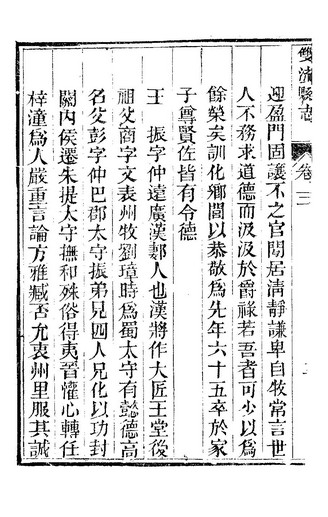 雙流縣志 卷三
迎盈門固讓不之官閒居清靜謙卑自牧常言世
人不務求道德而汲汲於爵祿若吾者可少以爲
餘榮矣訓化鄉閭以恭敬爲先年六十五卒於家
子尊賢佐皆有令德
王 振字仲遠廣漢郪人也漢將作大匠王堂後
祖父商字文表州牧劉璋時爲蜀太守有懿德高
名父彭字仲巴郡太守振弟兄四人兄化以功封
關內侯遷朱提太守撫和殊俗得夷晉懽心轉任
梓潼爲人嚴重言論方雅臧否允衷州里服其誠